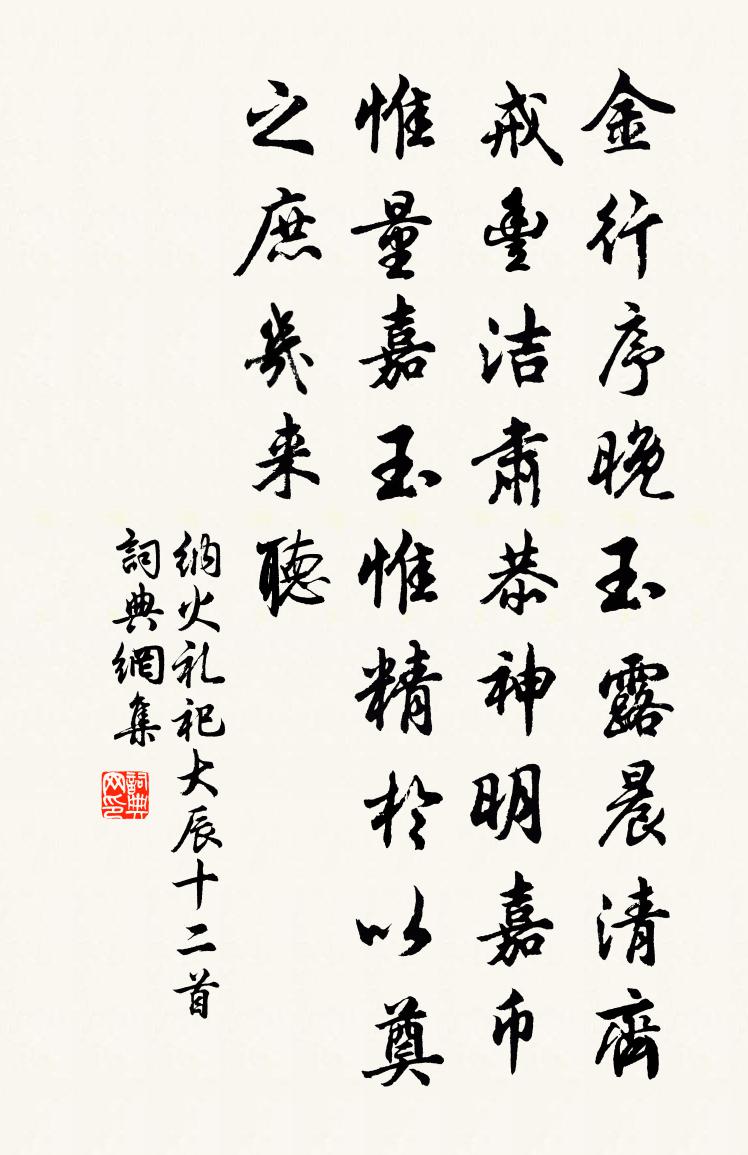 金行序晚玉露晨清齊
戒豐洁肅恭神明嘉币
惟量嘉玉惟精於以奠
之庶幾来聽
纳火礼祀大辰十二首
詞典網集
詞典网印